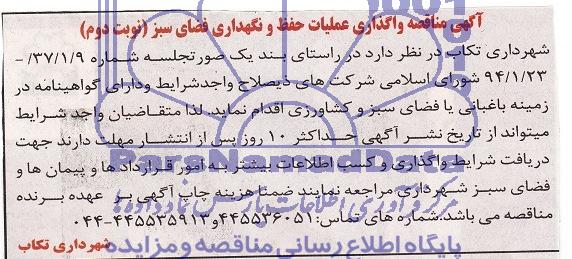 آگهی مناقصه واگذاری عملیات حفظ و نگهداری فضای سبز (نوبت دوم)
شهرداری تکاب در نظر دارد در راستای بند یک صورتجلسه شماره ۳۷/۱/۹/-
۹۴/۱/۲۳ شورای اسلامی شرکت های ذیصلاح واجدشرایط ودارای گواهینامه در
زمینه باغبانی یا فضای سبز و کشاورزی اقدام نماید. لذا متقاضیان واجد شرایط
میتواند از تاریخ نشر آگهی حداکثر ۱۰ روز پس از انتشار مهلت دارند جهت
دریافت شرایط واگذاری و کسب اطلاعات بیشتر به امور قرارداد ها و پیمان ها و
فضای سبز شهرداری مراجعه نمایند ضمنا هزینه چاپ آگهی بر عهده برنده
مناقصه می باشد. شماره های تماس: ۴۴۵۵۳۶۰۵۱و۴۴۵۵۳۵۹۱۳-۰۴۴
شهرداری تکاب
ParsNamadData
پایگاه اطلاع رسانی مناقصه و مزایده